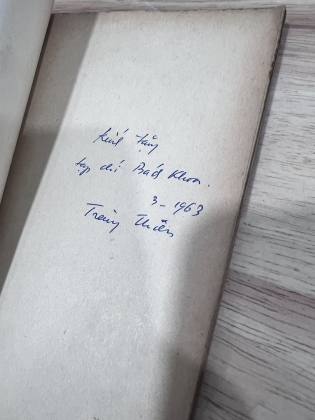 kính tặng
tạp chí Bách Khoa.
3-1963
Tràng Thiên